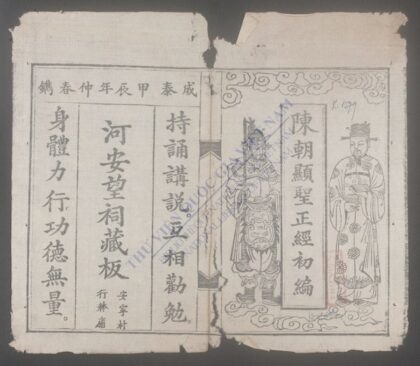 陳朝顯聖正經初編
成泰甲辰年仲春鐫
持誦講説互相勸勉。
河安望祠藏板
安寧村
行林廟
身體力行功德無量。
THƯ VIỆN QUỐC GIA VIỆT NAM
NATIONAL LIBRARY OF VIETNAM